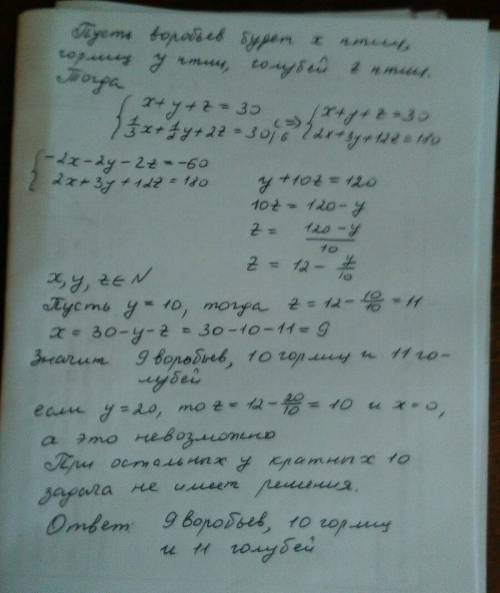 Пусть воробьев будет x птиц,
горлиц y птиц, голубей z птиц.
Тогда
{ x+y+z=30
{ 1/3x+1/2y+2z=30 |·6 => { x+y+z=30
{ 2x+3y+12z=180
{ -2x-2y-2z=-60
{ 2x+3y+12z=180
y+10z=120
10z=120-y
z= (120-y)/10
z=12- y/10
x, y, z ∈ N
Пусть y=10, тогда z=12- 10/10 =11
x=30-y-z=30-10-11=9
Значит 9 воробьев, 10 горлиц и 11 го-
лубей
если y=20, то z=12- 20/10 =10 и x=0,
а это невозможно
При остальных y кратных 10
задача не имеет решения.
Ответ 9 воробьев, 10 горлиц
и 11 голубей